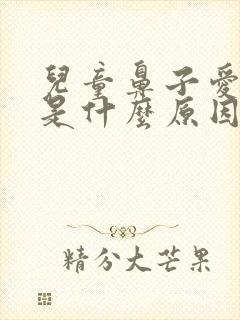 兒童鼻子愛
是什麼原因
精分大芒果